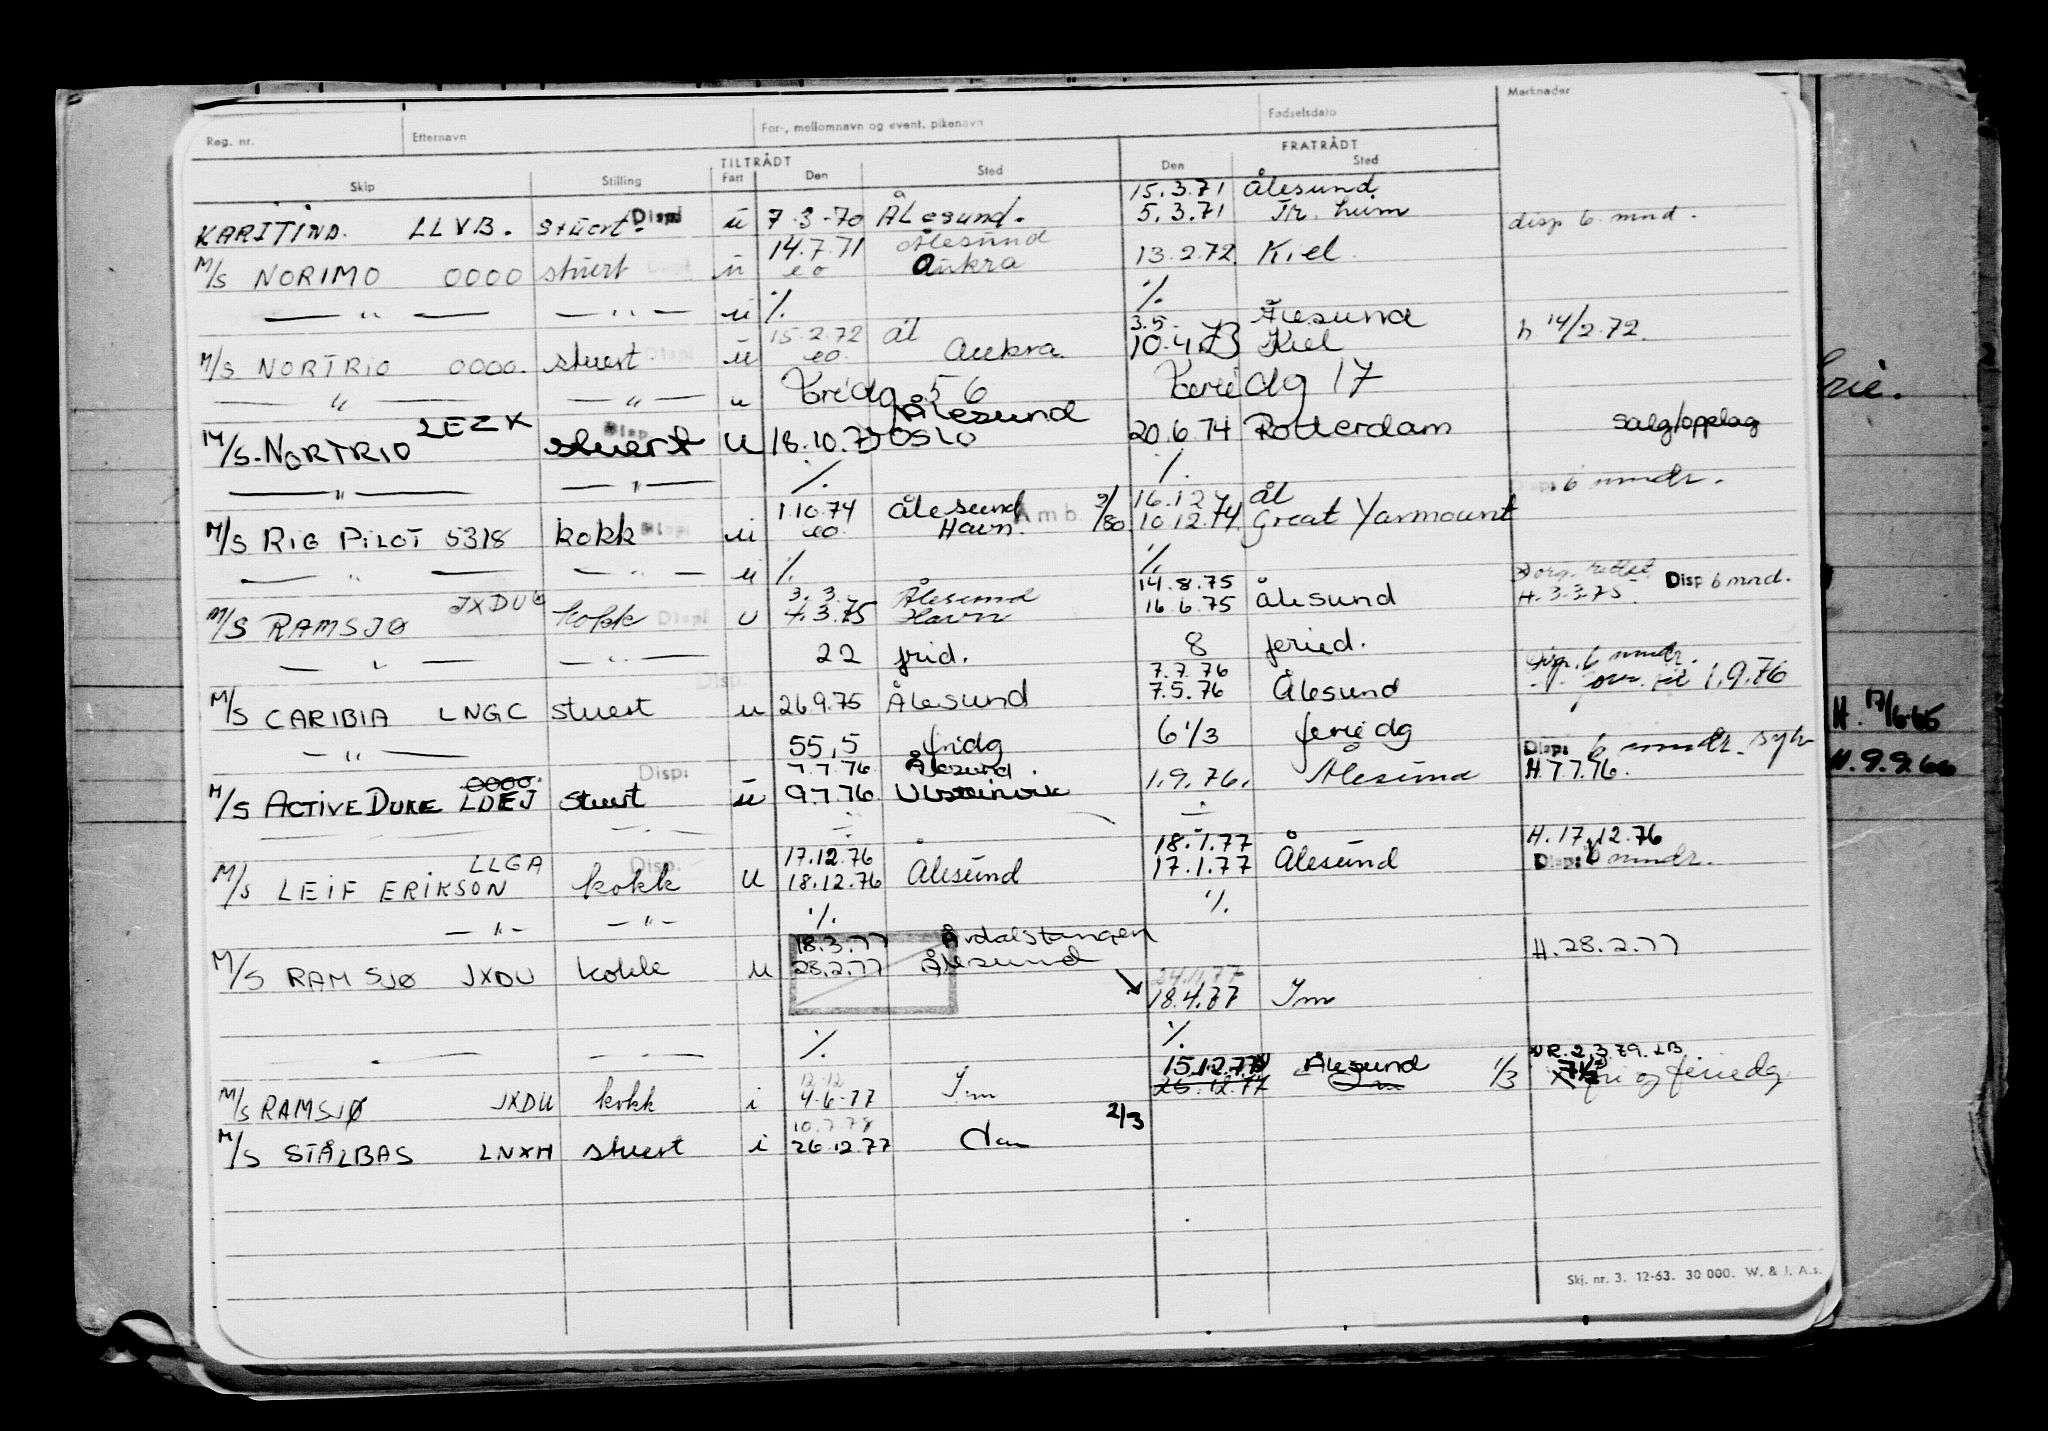 Reg. nr. Etternavn For-, mellomnavn og event. pikenavn Fødselsdato Merknader
TILTRÅDT FRATRÅDT
Skip Stilling Fart Den Sted Den Sted
15.3.71 Ålesund
KARITIND. LLVB. stuert. Disp ü 7-3-70 Ålesund. 5.3.71 Tr.heim disp 6 mnd.
14.7.71 Ålesund
M/S NORIMO 0000 stuert Displ ü eo Aukra 13.2.72. Kiel
— " — — " — ü % %
15.2.72 ål 3.5. Ålesund
M/S NORTRIO 0000. stuert Displ ü eo. Aukra. 10.4.73 Kiel h 14/2.72.
— " — — " — u 56 17
LEZK Disp Ålesund
M/S. NORTRIO stuert U 18.10.73 OSLO 20.6.74 Rotterdam Salg/opplag
— " — — " — % %
1.10.74 Ålesund Amb. 9/80 16.12.74 ål Disp. 6 mndr.
M/S RIG PILOT 5318 kokk Displ ü eo. Havn. 10.12.74. Great Yarmount
— " — — " — ü % %
JXDU 3.3. Ålesund 14.8.75 Disp 6 mnd.
M/S RAMSJØ kokk Displ u 4.3.75 Havn 16.6.75 Ålesund H. 3.3.75.
— " — — " — 22 frid. 8 feried.
Disp. 7.7.76 Disp. 6 mndr.
M/S CARIBIA LNGC stuert u 26.9.75 Ålesund 7.5.76 Ålesund 1.9.76
— " — 55,5 fridg 6 1/3 feriedg
0000. Disp: 7.7.76 Ålesund. Disp: 6 mndr. syk
M/S ACTIVE DUKE LDEJ stuert ü 9.7.76 Ulsteinvik 1.9.76. Ålesund H.7.7.76.
— " —
LLGA Disp. 17.12.76 18.1.77 H. 17.12.76
M/S LEIF ERIKSON kokk U 18.12.76 Ålesund 17.1.77 Ålesund Disp: 6 mndr.
— " — — " — % %
18.3.77 Årdalstangen
M/S RAMSJØ JXDU kokk U 28.2.77 Ålesund H.28.2.77
18.4.77 Im
— " — — " — % %
12.12 15.12.77 Ålesund 1/3 2.3.79.
M/S RAMSJØ JXDU kokk i 4-6-77 Im 26.12.77 7½ fri og feriedg
10.7.78 2/3
M/S STÅLBAS LNXH stuert i 26.12.77
Skj. nr. 3. 12-63. 30 000. W. & J. A.s.
rie.
H. 17/6-65
H. 9.9.66